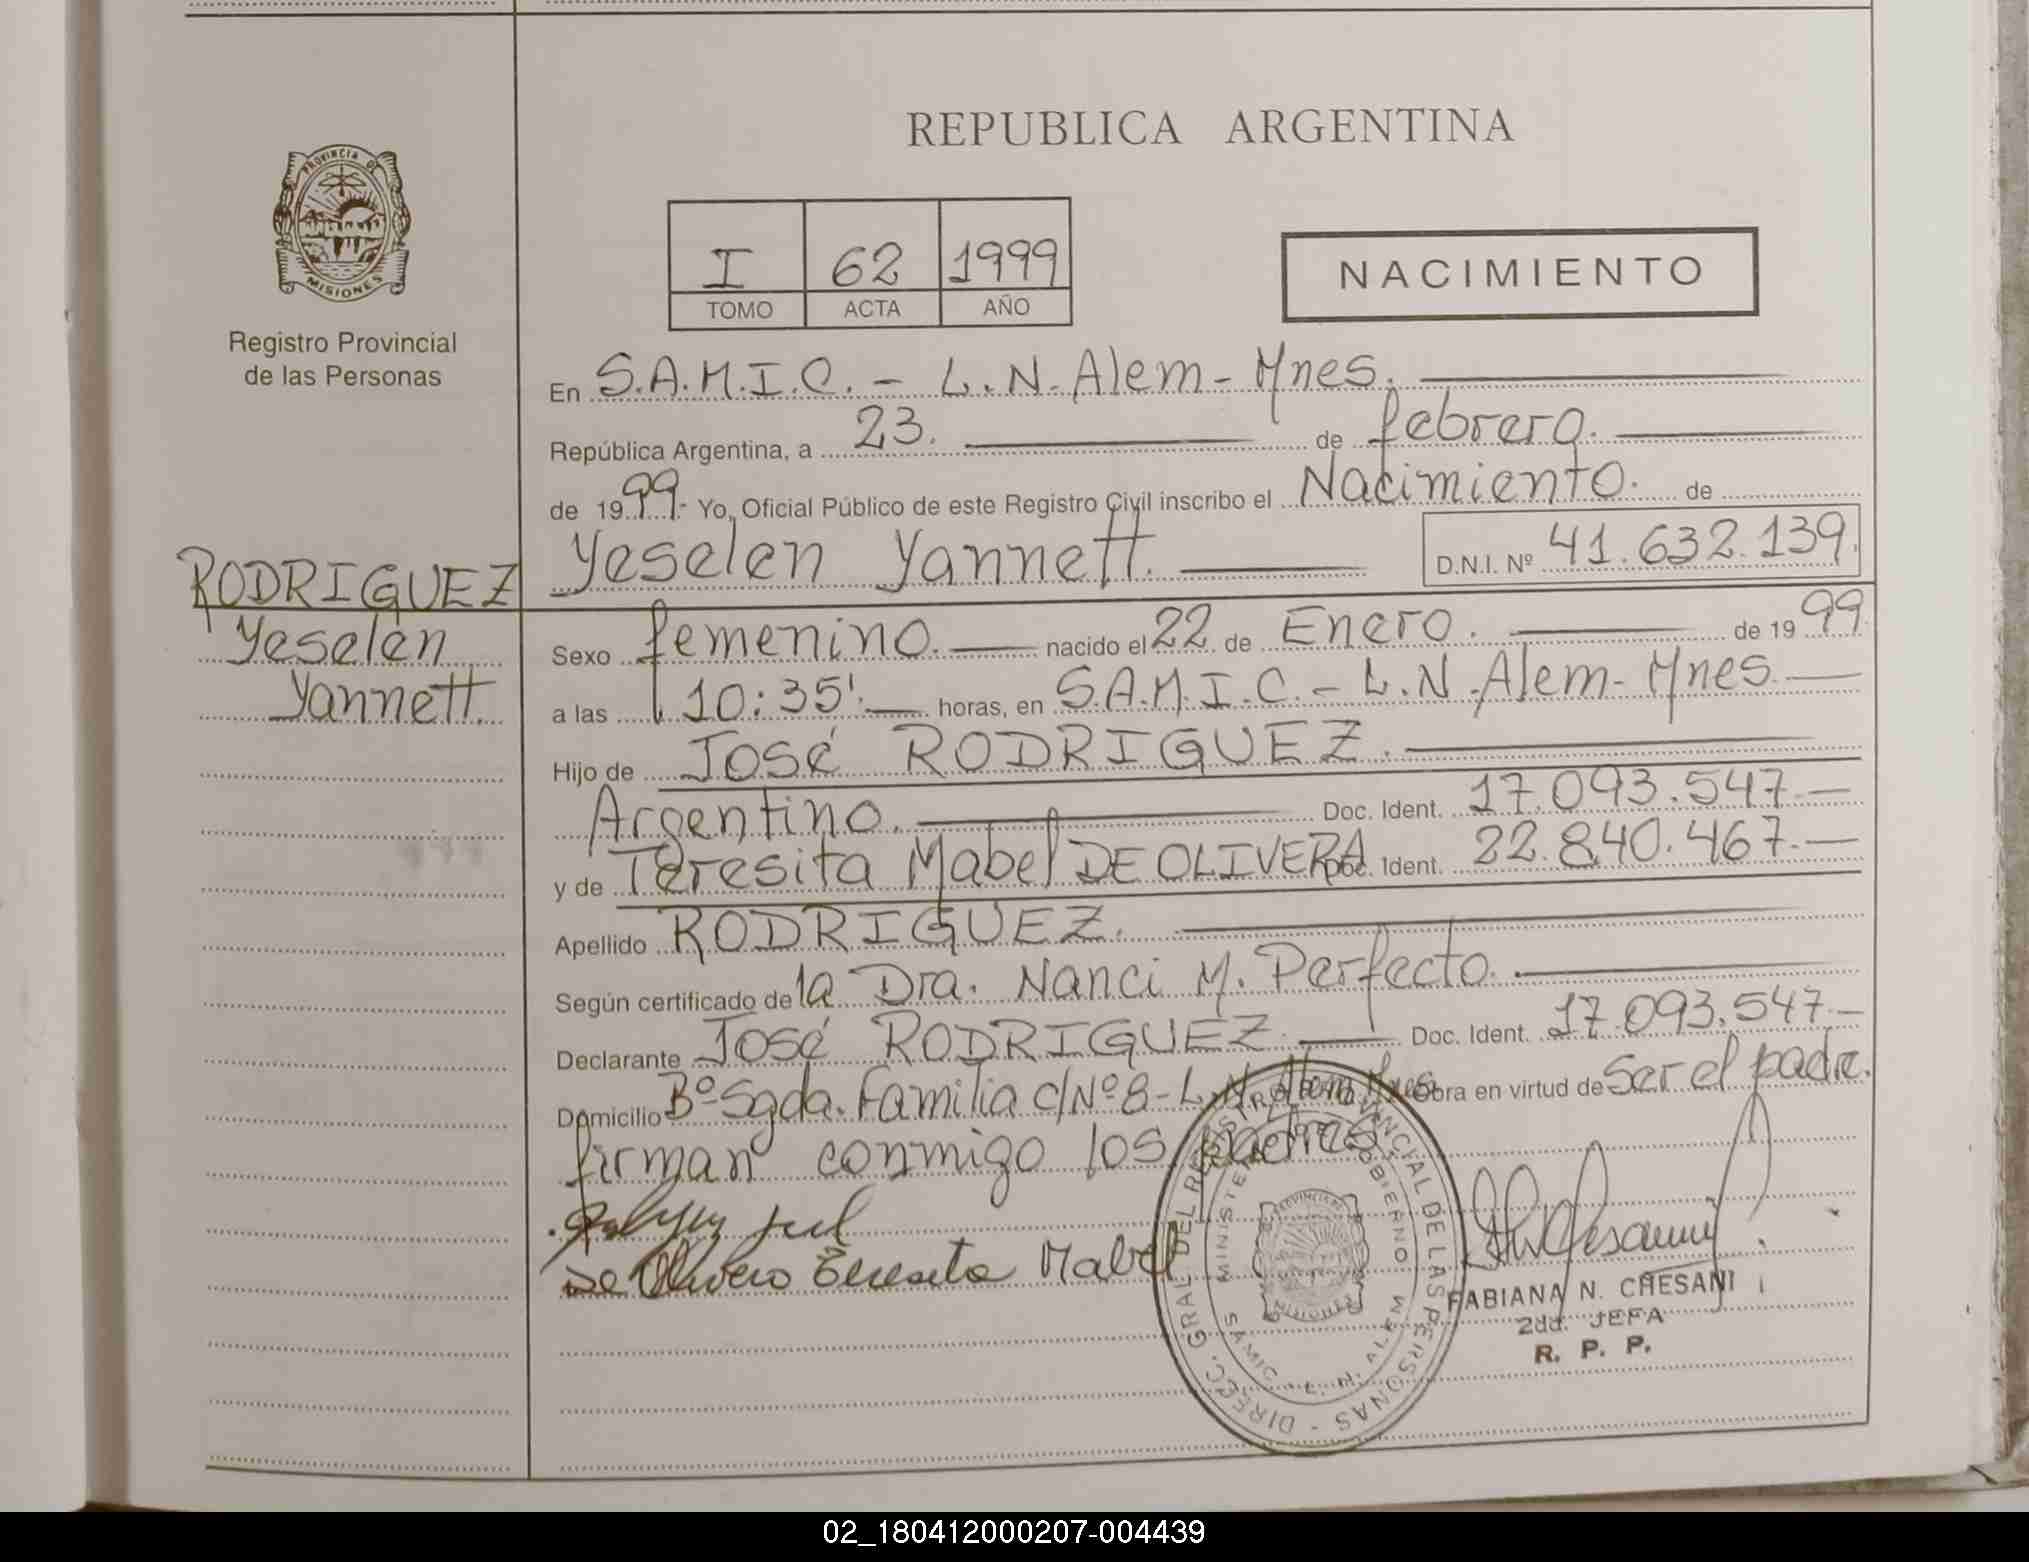 REPUBLICA ARGENTINA
PROVINCIA DE
MISIONES
Registro Provincial
de las Personas
I 62 1999
TOMO ACTA AÑO
NACIMIENTO
En S.A.M.I.C. - L.N. Alem - Mnes.
República Argentina, a 23. de febrero.
de 1999.- Yo, Oficial Público de este Registro Civil inscribo el Nacimiento. de
Yeselen Yannett. D.N.I. Nº 41.632.139.
RODRIGUEZ
Yeselen
Yannett.
Sexo femenino. nacido el 22 de Enero. de 1999
a las 10:35'. horas, en S.A.M.I.C. - L.N. Alem - Mnes.
Hijo de José RODRIGUEZ.
Argentino. Doc. Ident. 17.093.547.-
y de Teresita Mabel DE OLIVERA Doc. Ident. 22.840.467.-
Apellido RODRIGUEZ.
Según certificado de la Dra. Nanci M. Perfecto.
Declarante José RODRIGUEZ. Doc. Ident. 17.093.547.-
Domicilio Bº Sgda. Familia c/Nº 8 - L.N. Alem Mnes Obra en virtud de ser el padre.
firman conmigo los padres.
De Olivera Teresita Mabel
DIREC. GRAL DEL REGISTRO PROVINCIAL DE LAS PERSONAS -
MINISTERIO DE GOBIERNO
SAMIC - L. N. ALEM
PROVINCIA DE
MISIONES
FABIANA N. CHESANI
2da. JEFA
R. P. P.
02_180412000207-004439